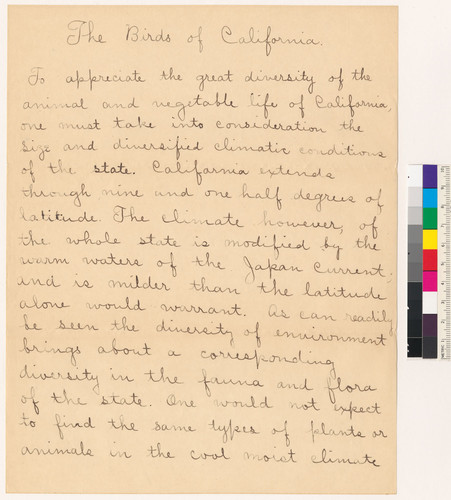 The Birds of California.
To appreciate the great diversity of the
animal and vegetable life of California,
one must take into consideration the
size and diversified climatic conditions
of the state. California extends
through nine and one half degrees of
latitude. The climate however, of
the whole state is modified by the
warm waters of the Japan Current,
and is milder than the latitude
alone would warrant. As can readily
be seen the diversity of environment
brings about a corresponding
diversity in the fauna and flora
of the state. One would not expect
to find the same types of plants or
animals in the cool moist climate